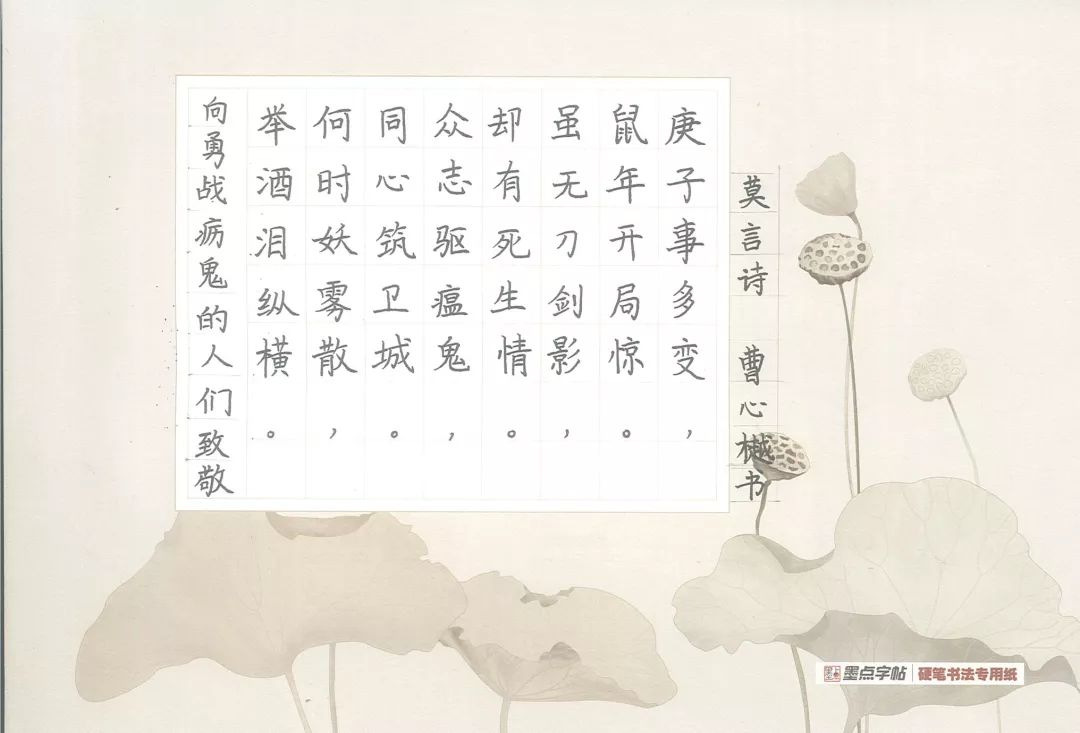 莫言诗 曹心樾书
庚子事多变，
鼠年开局惊。
虽无刀剑影，
却有死生情。
众志驱瘟鬼，
同心筑卫城。
何时妖雾散，
举酒泪纵横。
向勇战疠鬼的人们致敬
墨点字帖 硬笔书法专用纸